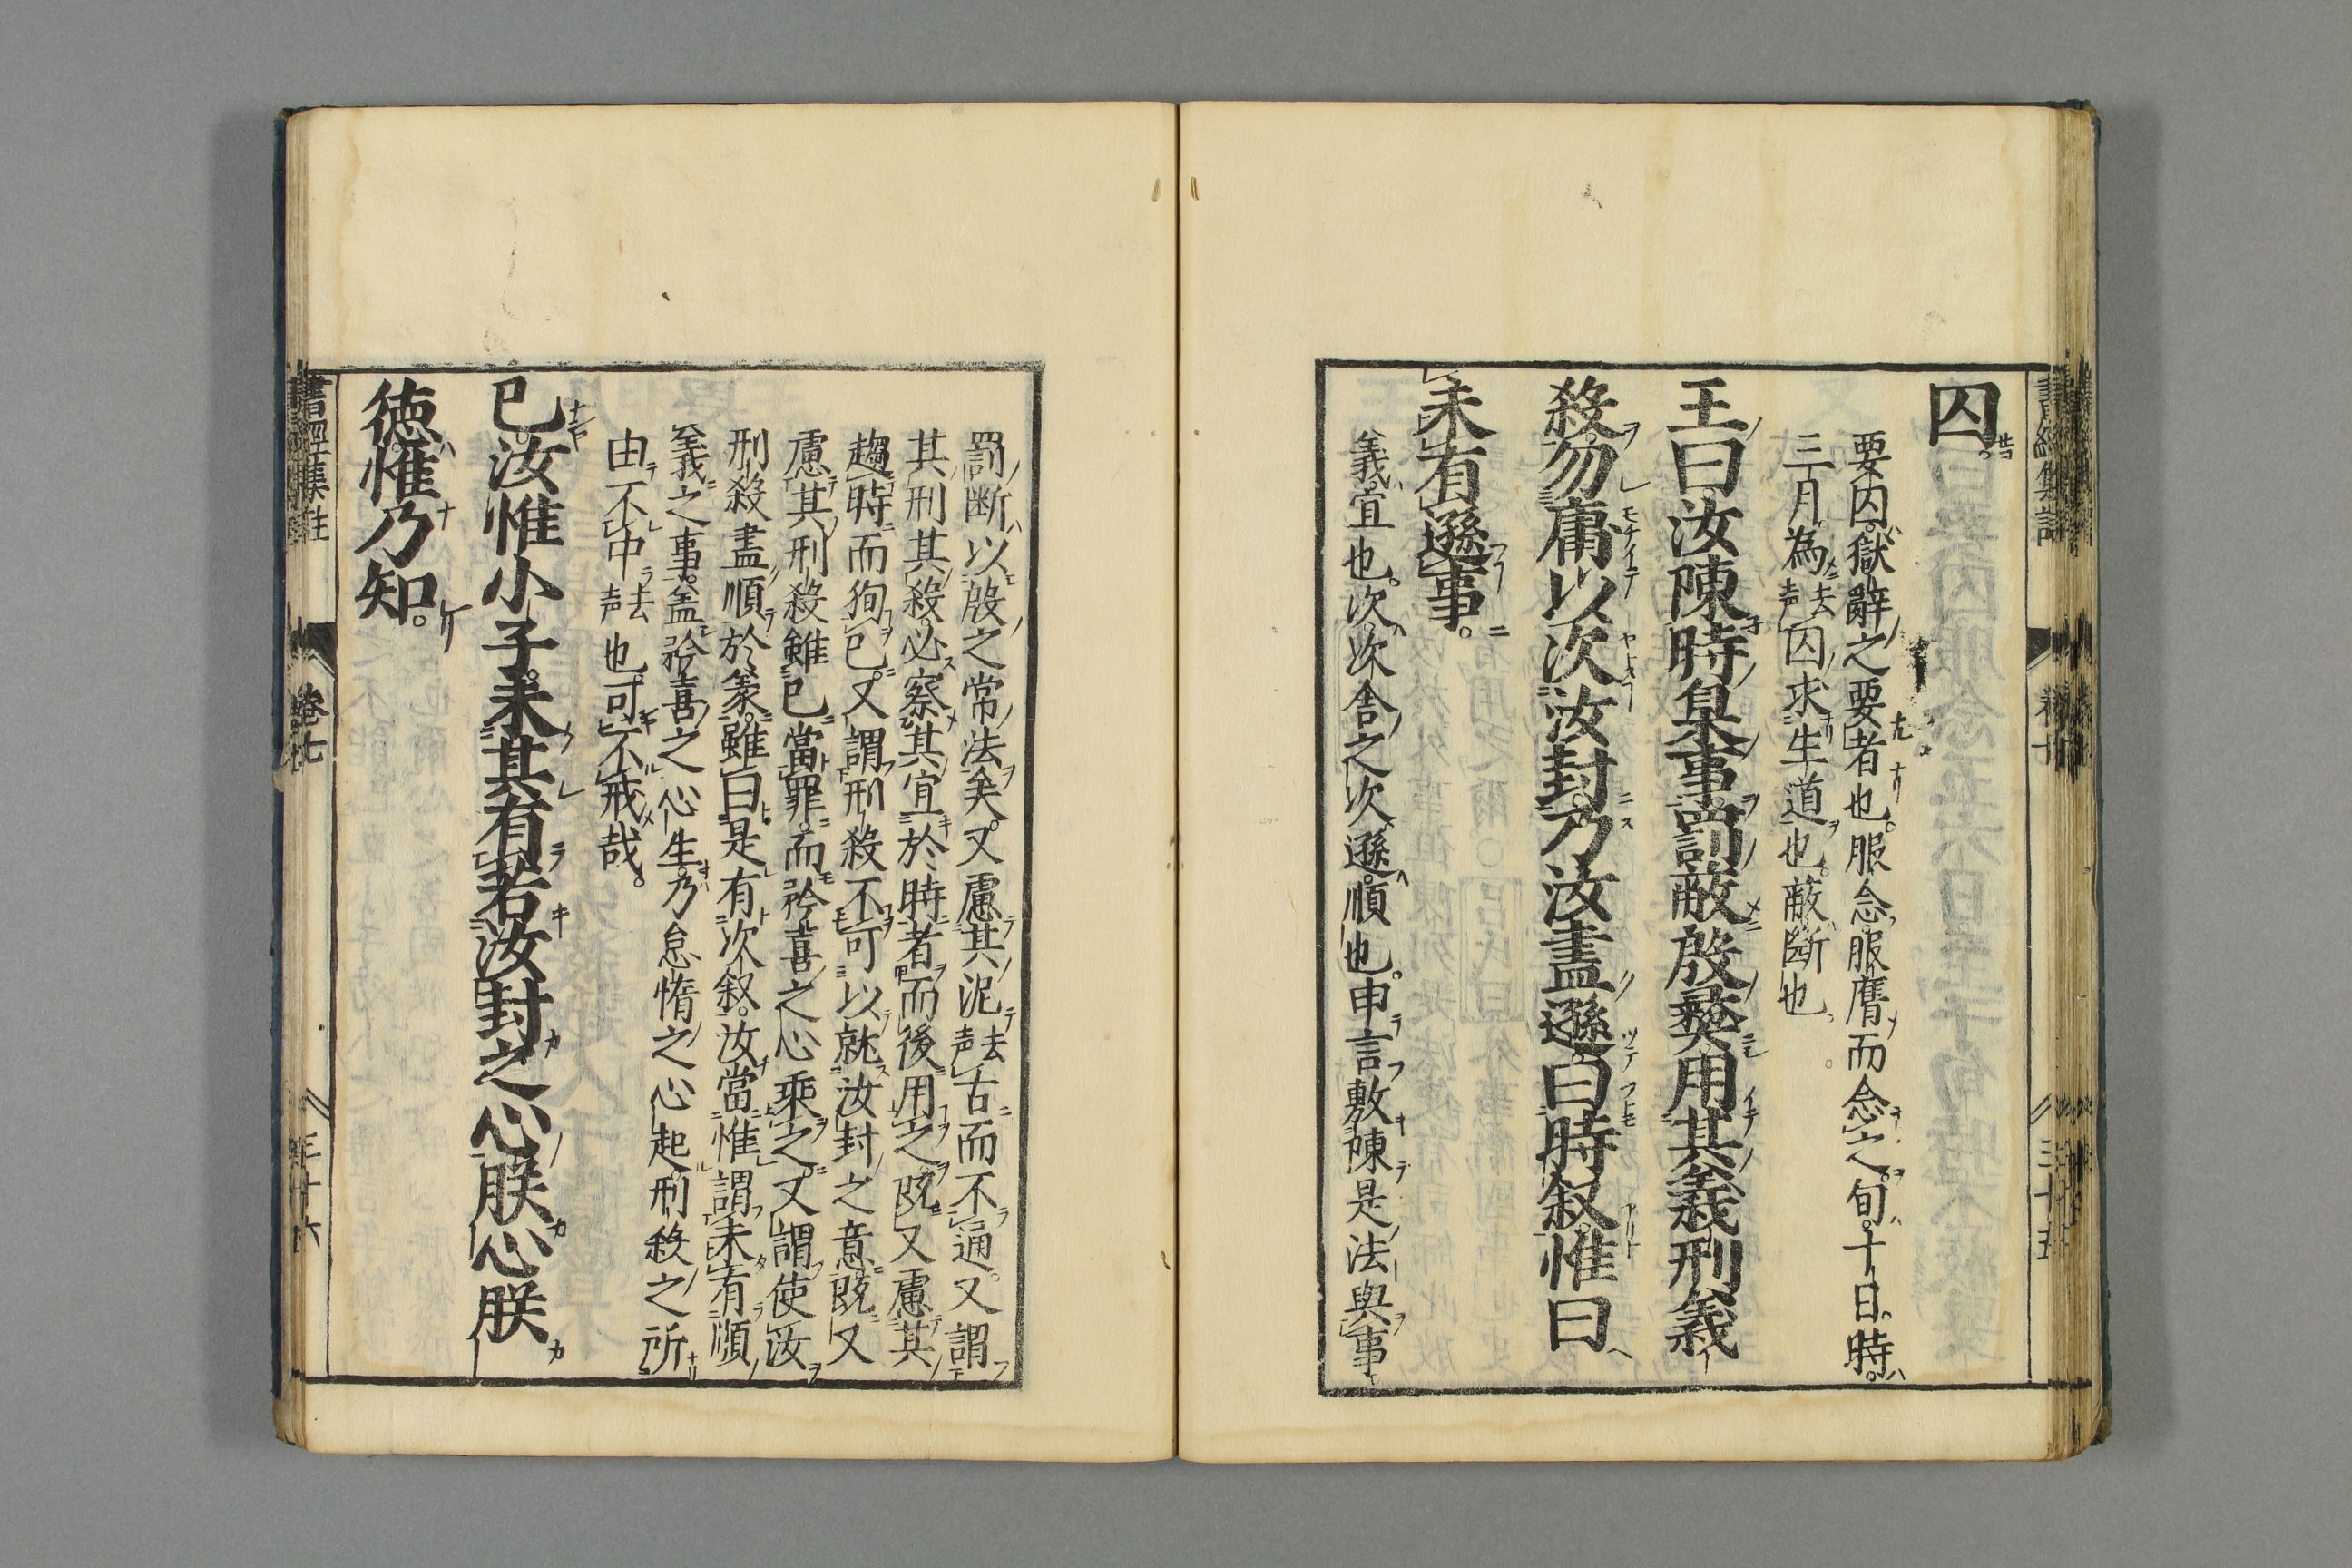 囚。
要囚。獄辭之要者也。服念。服膺而念之。旬。十日。時。
三月。為去声囚求生道也。蔽。斷也。
王曰。汝陳時臬事。罰蔽殷彝。用其義刑義
殺。勿庸以次汝封。乃汝盡遜。曰時叙。惟曰
未有遜事。
義。宜也。次。次舍之次。遜。順也。申言敷陳是法與事
罰断以殷之常法矣。又慮其泥去声古而不通。又謂
其刑其殺。必察其宜於時者。而後用之。既又慮其
趨時而徇己。又謂刑殺不可以就汝封之意。既又
慮其刑殺雖已當罪。而矜喜之心乘之。又謂使汝
刑殺盡順於義。雖曰是有次叙。汝當惟謂未有順
義之事。盖矜喜之心生。乃怠惰之心起。刑殺之所
由不中去声也。可不戒哉。
已。汝惟小子。未其有若汝封之心。朕心朕
徳。惟乃知。
書經集註
卷七
三十六
三十五